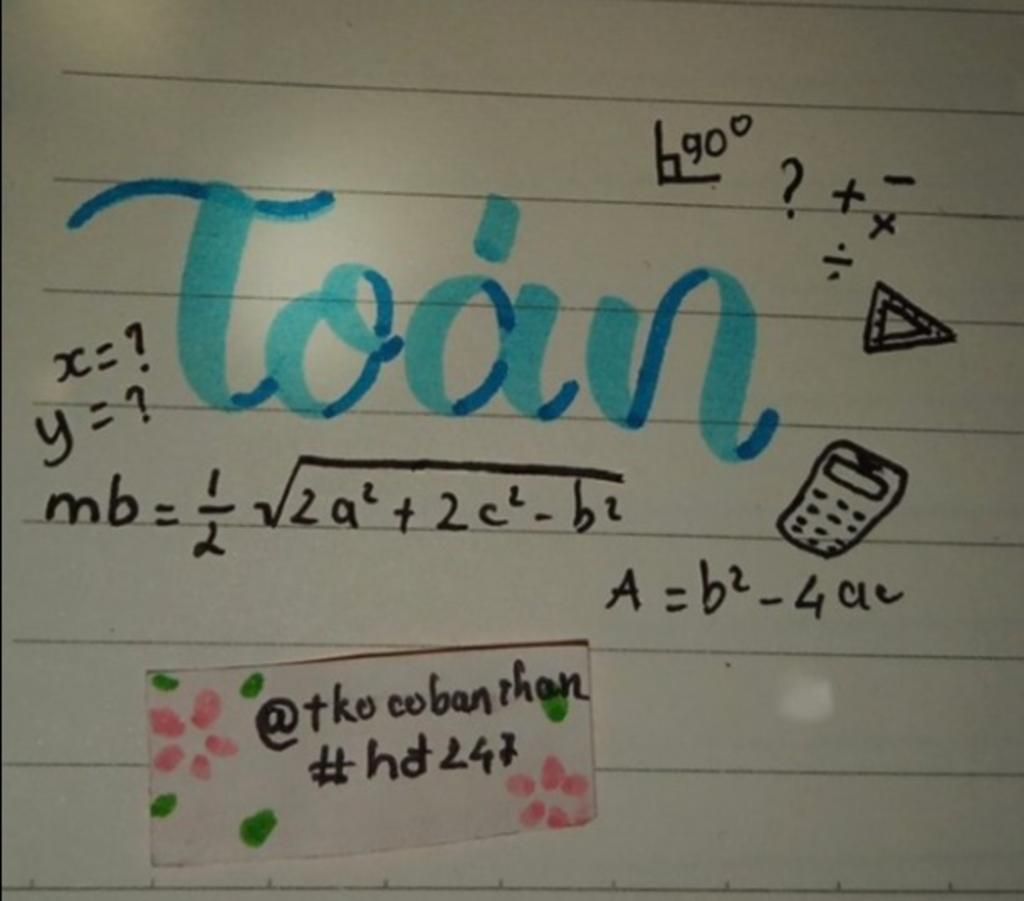 90°
? + -
×
÷
Toán
x = ?
y = ?
mb = 1/2 √2a² + 2c² - b²
A = b² - 4ac
@tkocobanthan
#hd247